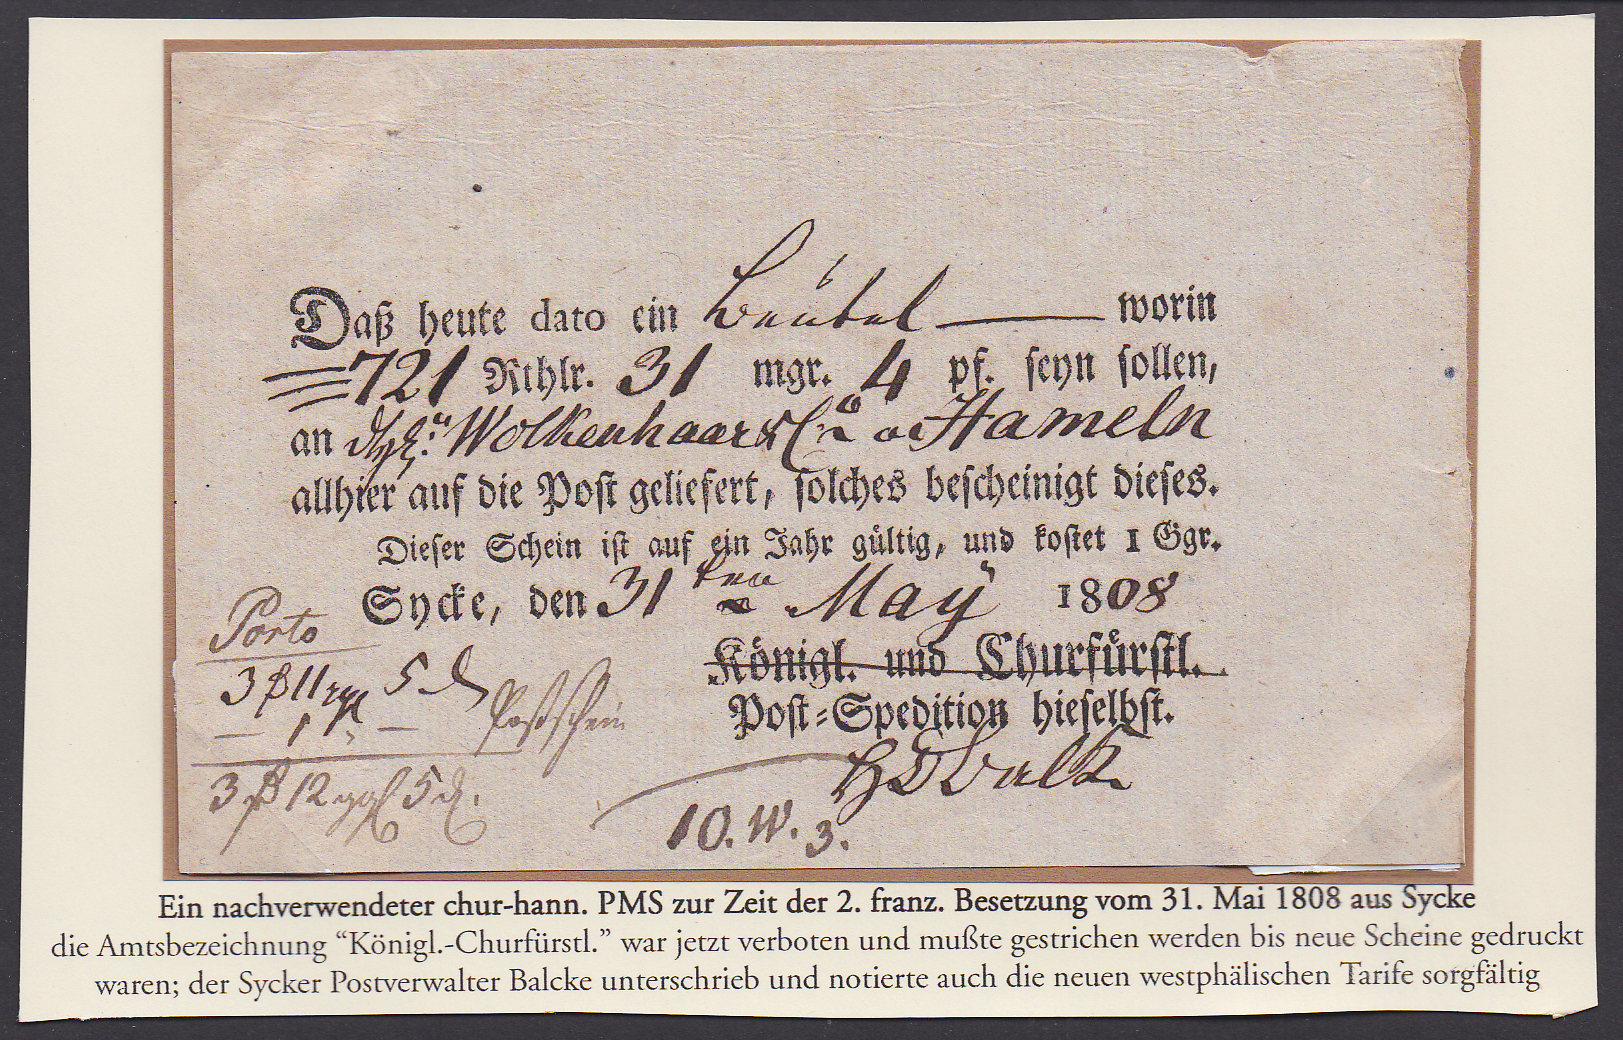 Daß heute dato ein Beutel worin
721 Rthlr. 31 mgr. 4 pf. seyn sollen,
an Wolkenhaar & Co a Hameln
allhier auf die Post geliefert, solches bescheinigt dieses.
Dieser Schein ist auf ein Jahr gültig, und kostet 1 Ggr.
Sycke, den 31ten May 1808
Königl. und Churfürstl.
Post-Spedition hieselbst.
Porto
3 11 5
1 Postschein
3 12 5
10. W. 3.
Ein nachverwendeter chur-hann. PMS zur Zeit der 2. franz. Besetzung vom 31. Mai 1808 aus Sycke
die Amtsbezeichnung “Königl.-Churfürstl.” war jetzt verboten und mußte gestrichen werden bis neue Scheine gedruckt
waren; der Sycker Postverwalter Balcke unterschrieb und notierte auch die neuen westphälischen Tarife sorgfältig